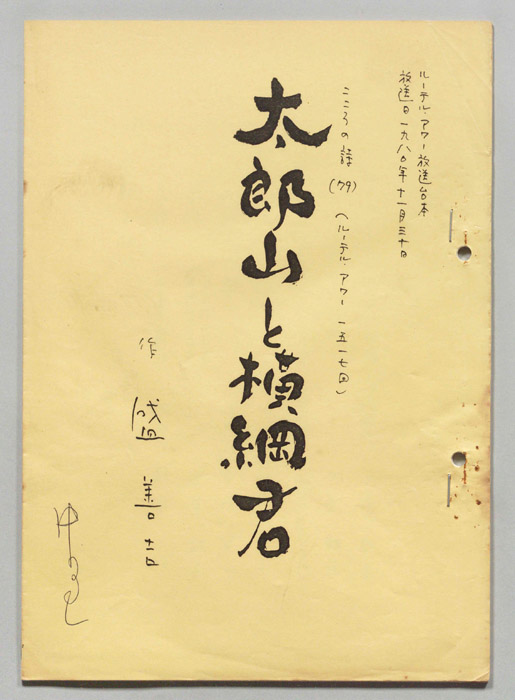 ルーテル・アワー放送台本
放送日 一九八〇年十一月三十日
こころの詩 (79) (ルーテル・アワー 一五一七回)
太郎山と横綱君
作 盛 善吉